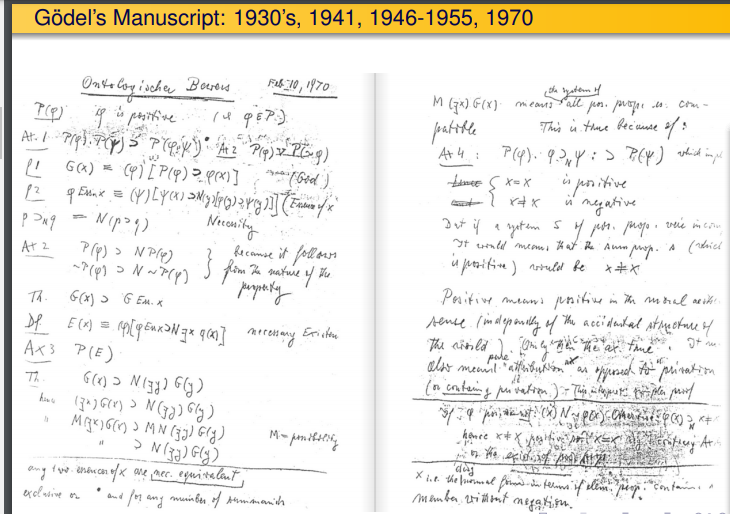 Gödel's Manuscript: 1930's, 1941, 1946-1955, 1970
Ontologischer Beweis Feb. 10, 1970
P(φ) φ is positive (i.e. φ∈P.)
At. 1 P(φ).P(ψ) ⊃ P(φ.ψ) At 2 P(φ) ∨ P(~φ)
P1 G(x) ≡ (φ)[P(φ) ⊃ φ(x)] (God)
P2 φ Ess.x ≡ (ψ)[ψ(x) ⊃ N(y)[φ(y) ⊃ ψ(y)]] (Essence of x
p ⊃N q = N(p ⊃ q) Necessity
At 2 P(φ) ⊃ N P(φ) } because it follows
~P(φ) ⊃ N ~P(φ) from the nature of the
property
Th. G(x) ⊃ G Ess. x
Df. E(x) ≡ (φ)[φ Ess x ⊃ N ∃x φ(x)] necessary Existen
Ax 3 P(E)
Th. G(x) ⊃ N(∃y) G(y)
hence (∃x) G(x) ⊃ N(∃y) G(y)
" M(∃x) G(x) ⊃ M N(∃y) G(y) M = possibility
" ⊃ N(∃y) G(y)
any two essences of x are nec. equivalent
exclusive or * and for any number of summands
the system of
M(∃x) G(x) means all pos. props is com-
patible This is true because of:
At 4: P(φ). φ ⊃N ψ: ⊃ P(ψ) which impl
hence { x=x is positive
and x≠x is negative
But if a system S of pos. props. were incom
It would mean that the sum prop. s (which
is positive) would be x≠x
Positive means positive in the moral aesth.
sense (independly of the accidental structure of
the world). Only then the ax. true. It m
also mean pure "attribution" as opposed to privation
(or containing privation). This interpret. simpler proof
If φ positive: (x) N ~φ(x). Otherwise: φ(x) ⊃ x≠
hence x≠x positive x=x At
or the
x i.e. the normal form in terms of elem. prop. contains a
member without negation.